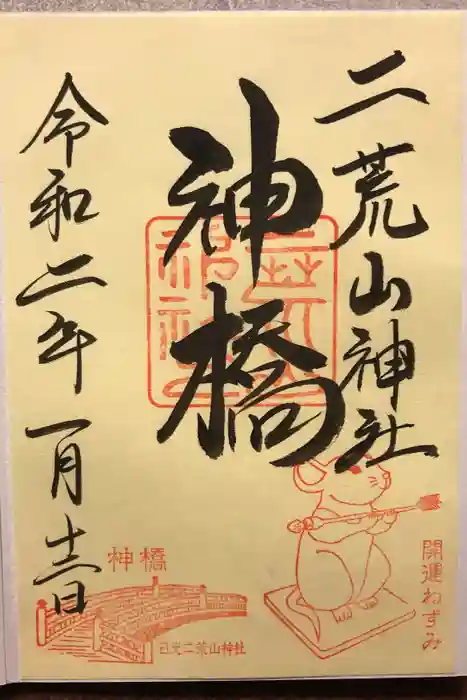 二荒山神社
神橋
令和二年一月日
開運ねずみ
神橋
日光二荒山神社